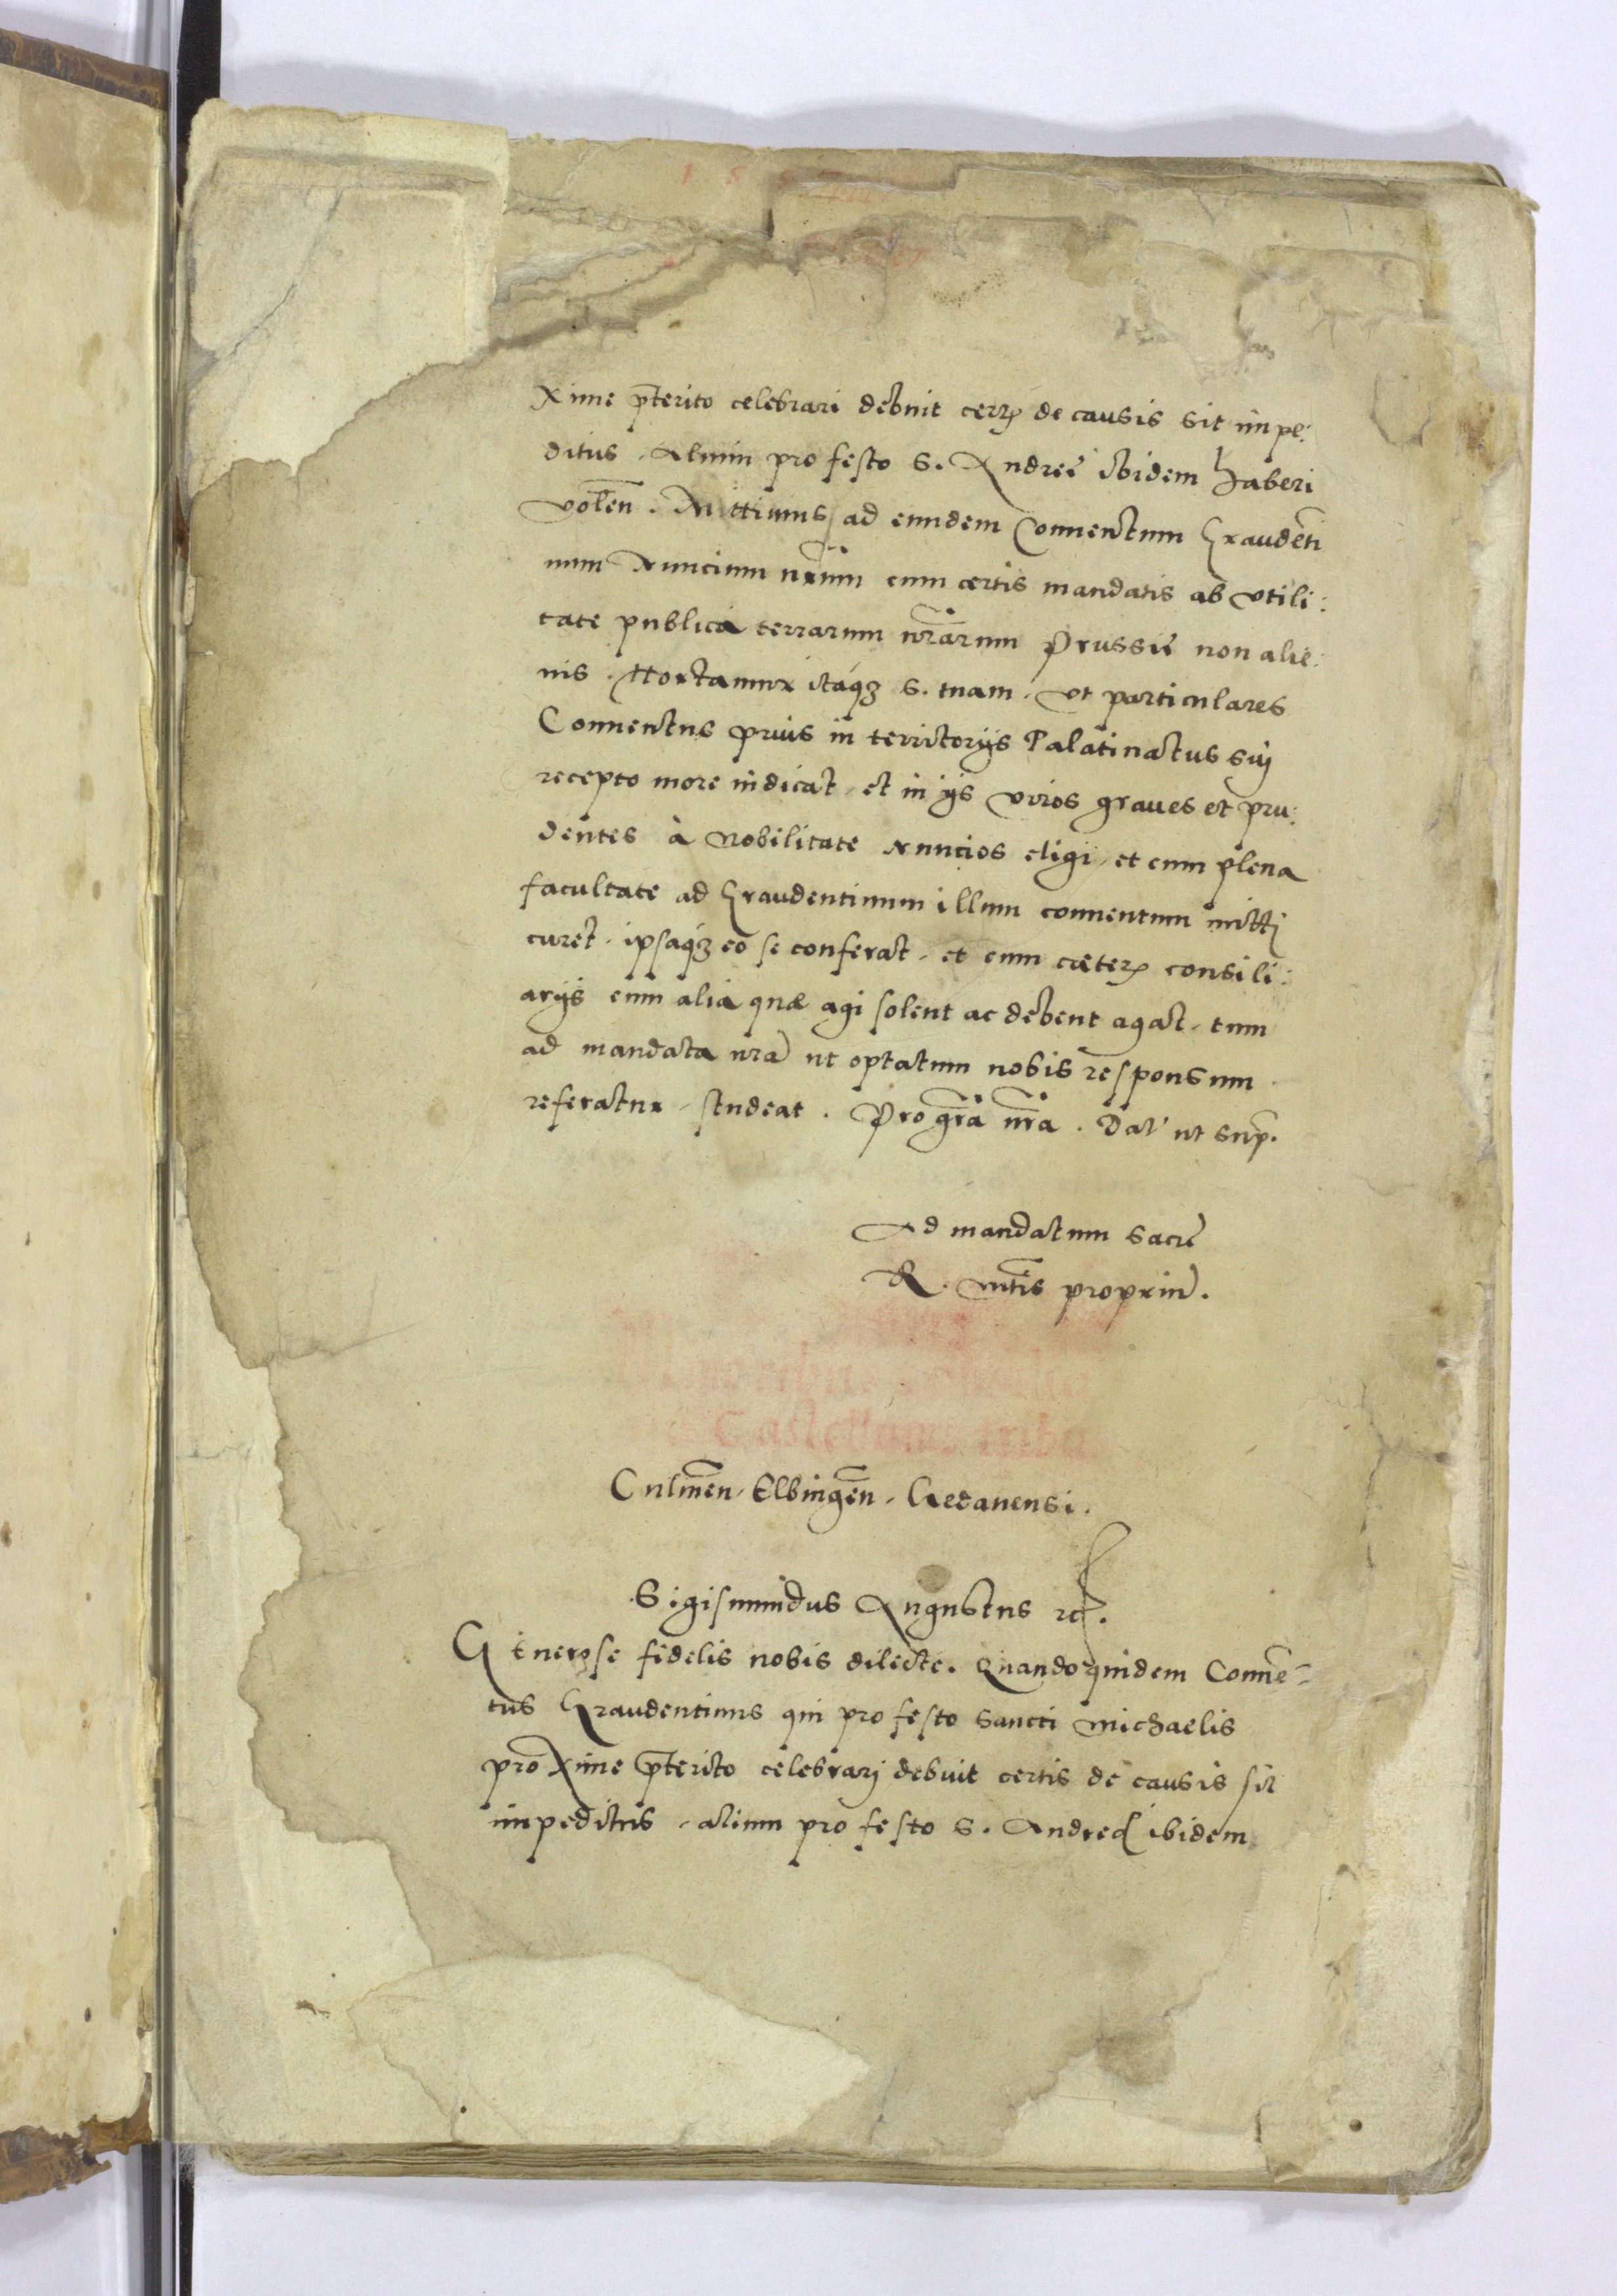 xime p̃terito celebrari debuit certꝭ de causis sit impe:
ditus, alium pro festo S. Andreę ibidem haberi
volen̄. Mittimus ad eundem Conuentum Graudẽti
num Nuncium nr̃um cum certis mandatis ab vtili:
tate publica terrarum nr̃arum Prussię non alie:
nis. Hortamur itaqꝫ S. tuam, vt particulares
Conuentus prius in territorijs Palatinatus sui
recepto more indicat, et in ijs viros graues et pru:
dentes à Nobilitate Nuncios eligi, et cum plena
facultate ad Graudentinum illum conuentum mitti
curet, ipsaqꝫ eo se conferat, et cum cæterꝭ consili:
arijs cum alia quæ agi solent ac debent agat, tum
ad mandata nr̃a ut optatum nobis responsum
referatur, studeat. Pro gr̃a nr̃a. Dat' ut sup̃.
Ad mandatum Sacrę
R. Mt̃is propriũ.
Castellanis tribu
Culmen̄, Elbingen̄, Gedanensi.
Sigismundus Augustus ꝛc.
Generose fidelis nobis dilecte. Quandoquidem Conuẽ-
tus Graudentinus qui pro festo Sancti Michaelis
proxime p̃terito celebrari debuit certis de causis sit
impeditus, alium pro festo S. Andreę ibidem